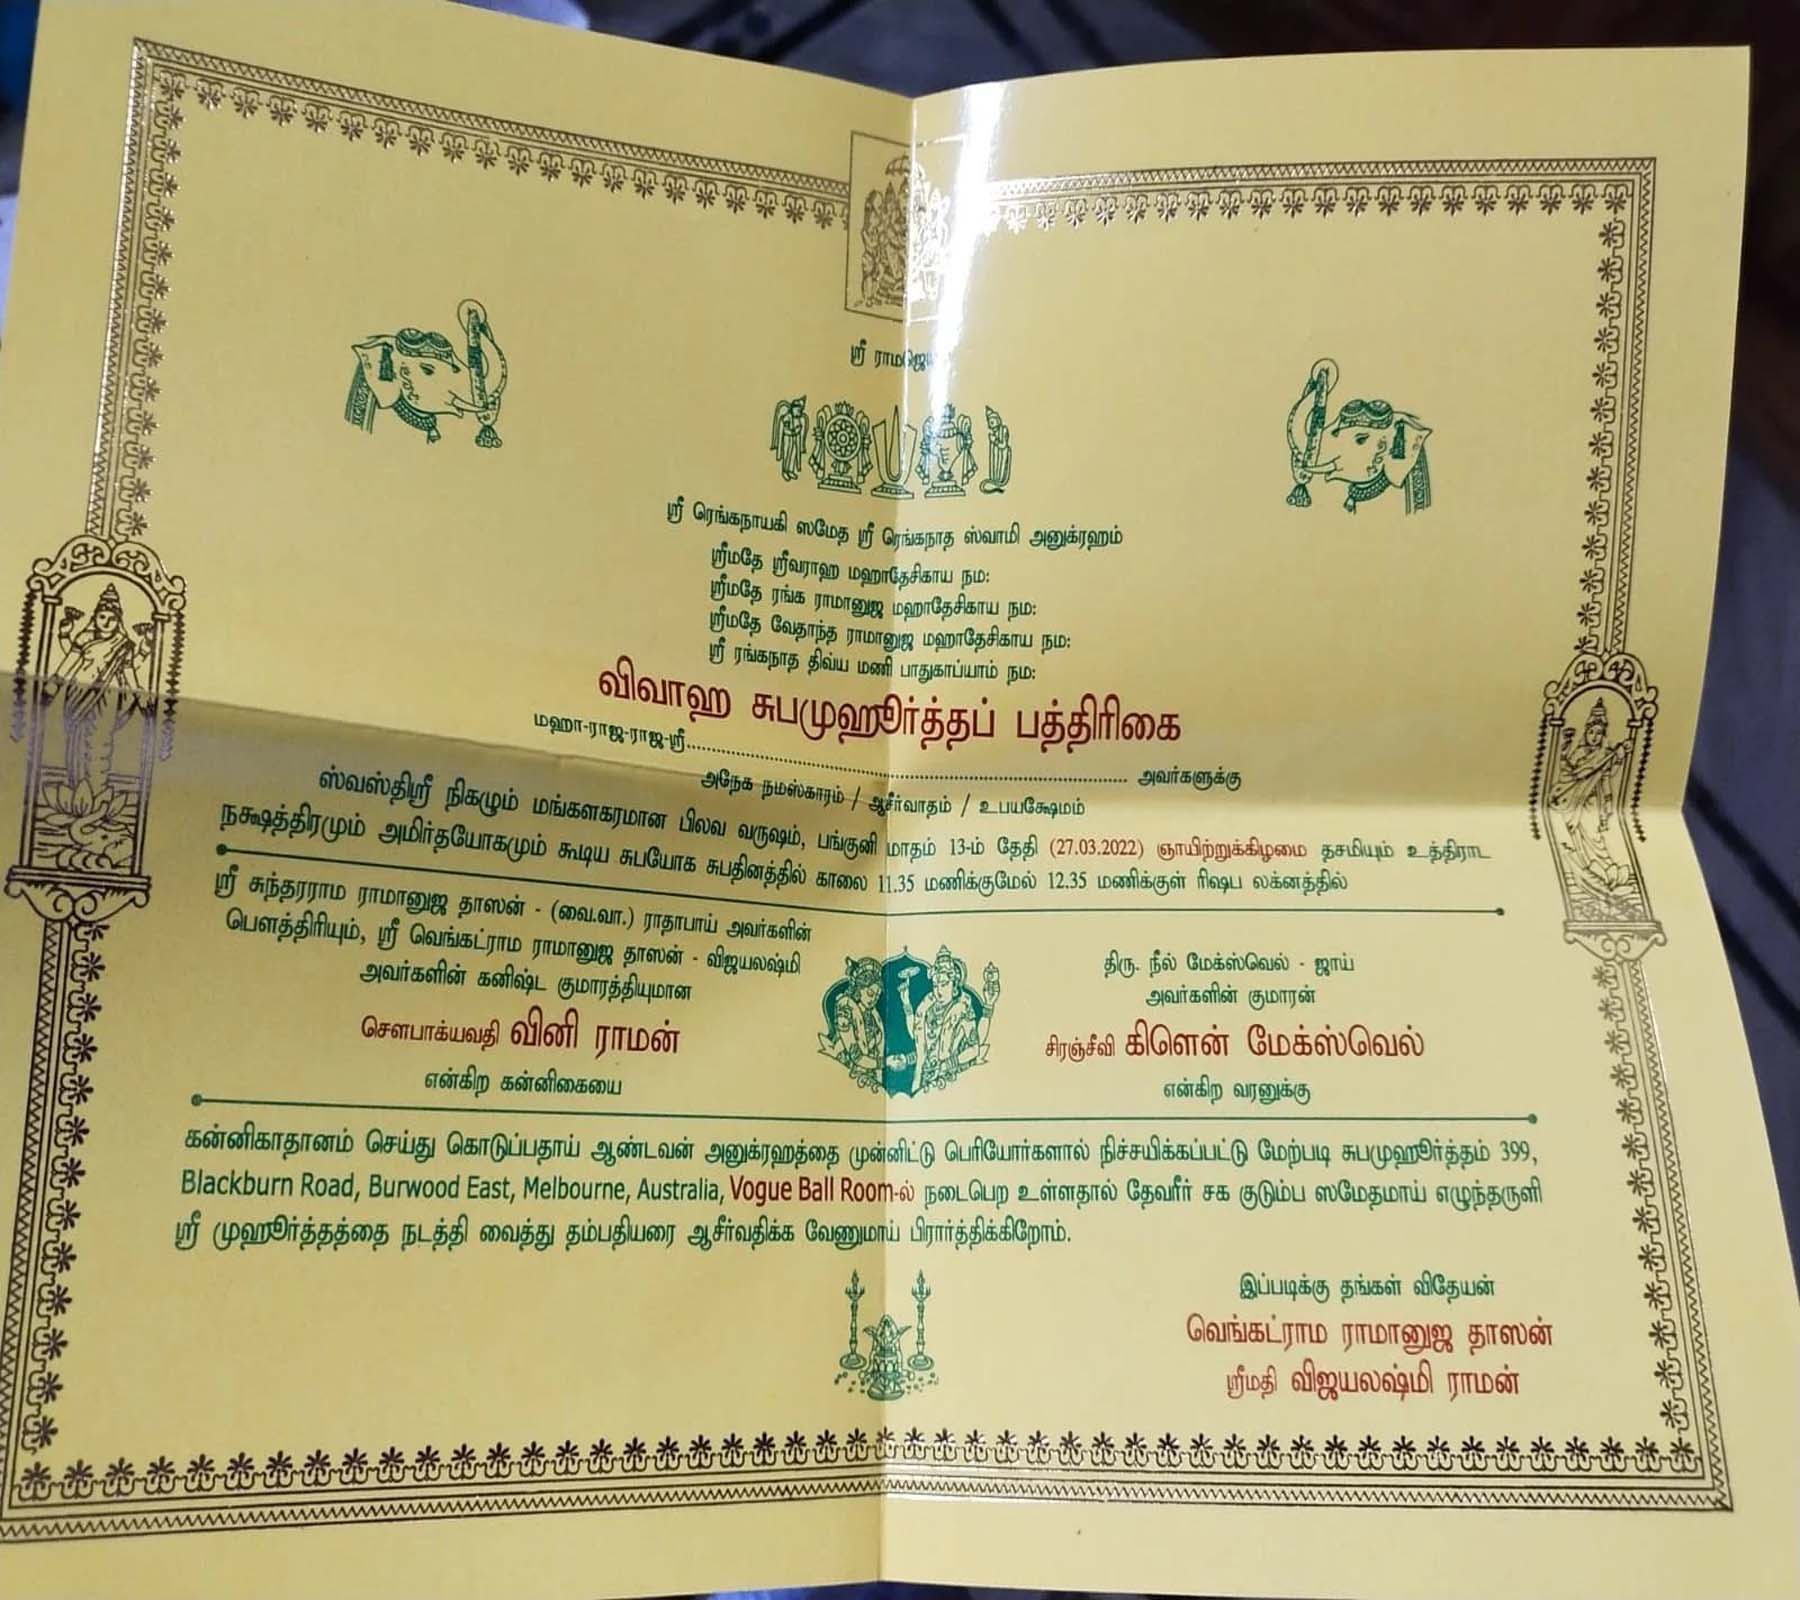 ஸ்ரீ ராமஜெய
ஸ்ரீ ரெங்கநாயகி ஸமேத ஸ்ரீ ரெங்கநாத ஸ்வாமி அனுக்ரஹம்
ஸ்ரீமதே ஸ்ரீவராஹ மஹாதேசிகாய நம:
ஸ்ரீமதே ரங்க ராமானுஜ மஹாதேசிகாய நம:
ஸ்ரீமதே வேதாந்த ராமானுஜ மஹாதேசிகாய நம:
ஸ்ரீ ரங்கநாத திவ்ய மணி பாதுகாப்யாம் நம:
விவாஹ சுபமுஹூர்த்தப் பத்திரிகை
மஹா-ராஜ-ராஜ-ஸ்ரீ.......................................................................... அவர்களுக்கு
அநேக நமஸ்காரம் / ஆசீர்வாதம் / உபயக்ஷேமம்
ஸ்வஸ்திஸ்ரீ நிகழும் மங்களகரமான பிலவ வருஷம், பங்குனி மாதம் 13-ம் தேதி (27.03.2022) ஞாயிற்றுக்கிழமை தசமியும் உத்திராட
நக்ஷத்திரமும் அமிர்தயோகமும் கூடிய சுபயோக சுபதினத்தில் காலை 11.35 மணிக்குமேல் 12.35 மணிக்குள் ரிஷப லக்னத்தில்
ஸ்ரீ சுந்தரராம ராமானுஜ தாஸன் - (வை.வா.) ராதாபாய் அவர்களின்
பௌத்திரியும், ஸ்ரீ வெங்கட்ராம ராமானுஜ தாஸன் - விஜயலஷ்மி
அவர்களின் கனிஷ்ட குமாரத்தியுமான
சௌபாக்யவதி வினி ராமன்
என்கிற கன்னிகையை
திரு. நீல் மேக்ஸ்வெல் - ஜாய்
அவர்களின் குமாரன்
சிரஞ்சீவி கிளென் மேக்ஸ்வெல்
என்கிற வரனுக்கு
கன்னிகாதானம் செய்து கொடுப்பதாய் ஆண்டவன் அனுக்ரஹத்தை முன்னிட்டு பெரியோர்களால் நிச்சயிக்கப்பட்டு மேற்படி சுபமுஹூர்த்தம் 399,
Blackburn Road, Burwood East, Melbourne, Australia, Vogue Ball Room-ல் நடைபெற உள்ளதால் தேவரீர் சக குடும்ப ஸமேதமாய் எழுந்தருளி
ஸ்ரீ முஹூர்த்தத்தை நடத்தி வைத்து தம்பதியரை ஆசீர்வதிக்க வேணுமாய் பிரார்த்திக்கிறோம்.
இப்படிக்கு தங்கள் விதேயன்
வெங்கட்ராம ராமானுஜ தாஸன்
ஸ்ரீமதி விஜயலஷ்மி ராமன்